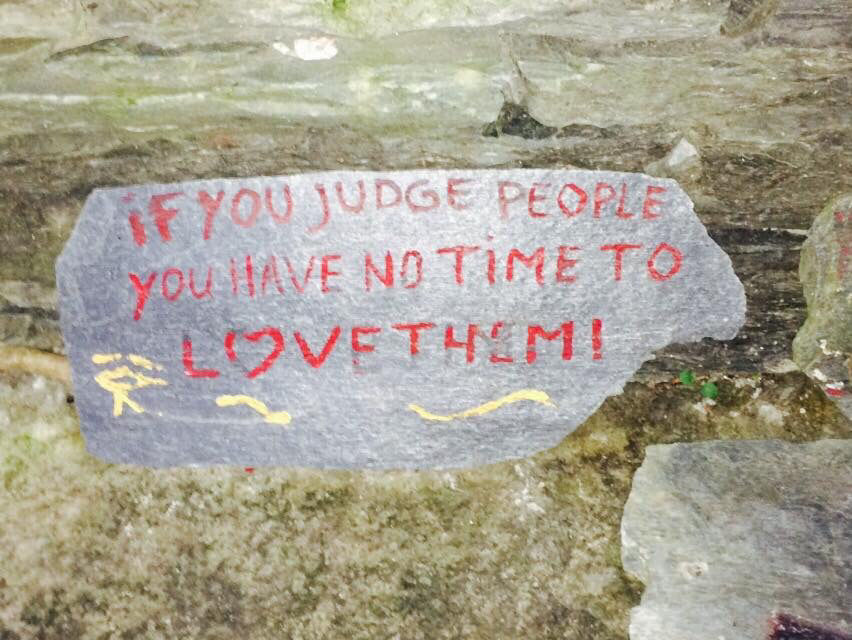 iF YOU JUDGE PEOPLE
YOU HAVE NO TiME TO
L♡VE THEM!